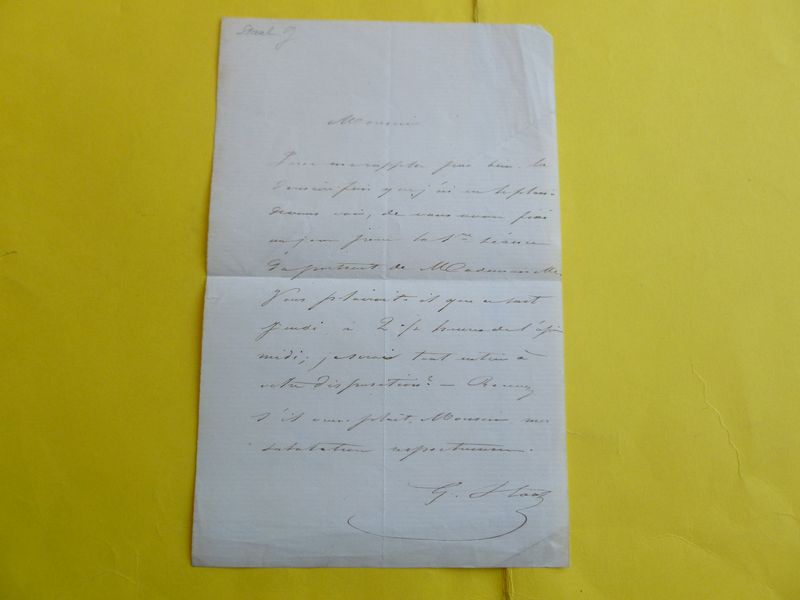 Staal G
Monsieur
Je ne me rappelle pas bien, la
dernière fois que j'ai eu le plaisir
de vous voir, de vous avoir fixé
un jour pour la 1re séance
du portrait de Mademoiselle.
Vous plairait-il que ce fut
jeudi à 2 1/2 heures de l'après
midi; je serai tout entier à
votre disposition? — Recevez
s'il vous plait, Monsieur mes
salutations respectueuses.
G. Staal